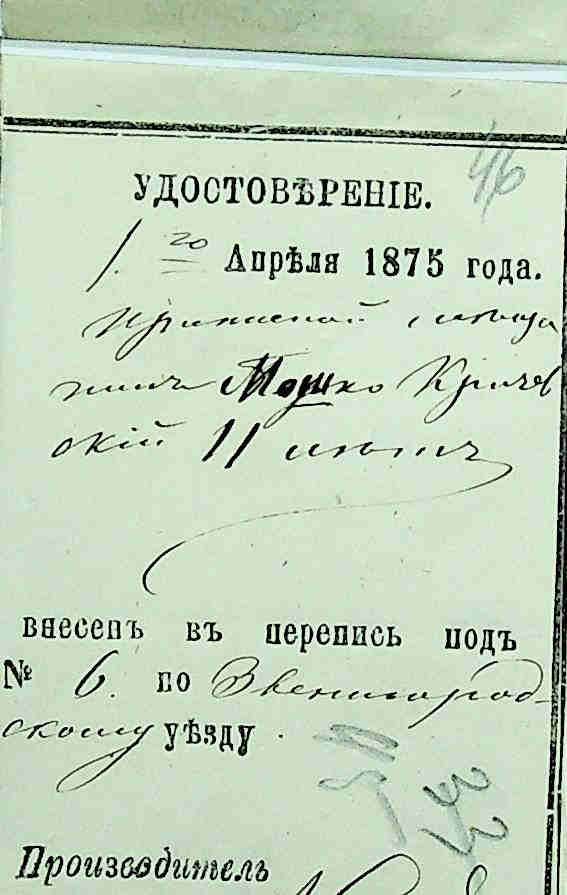 46
УДОСТОВѢРЕНІЕ.
1. го Апрѣля 1875 года.
мѣща
нинъ Мошко Кричев
скій 11 лѣтъ
внесенъ въ перепись подъ
№ 6. по Звенигород-
скому уѣзду
Производитель